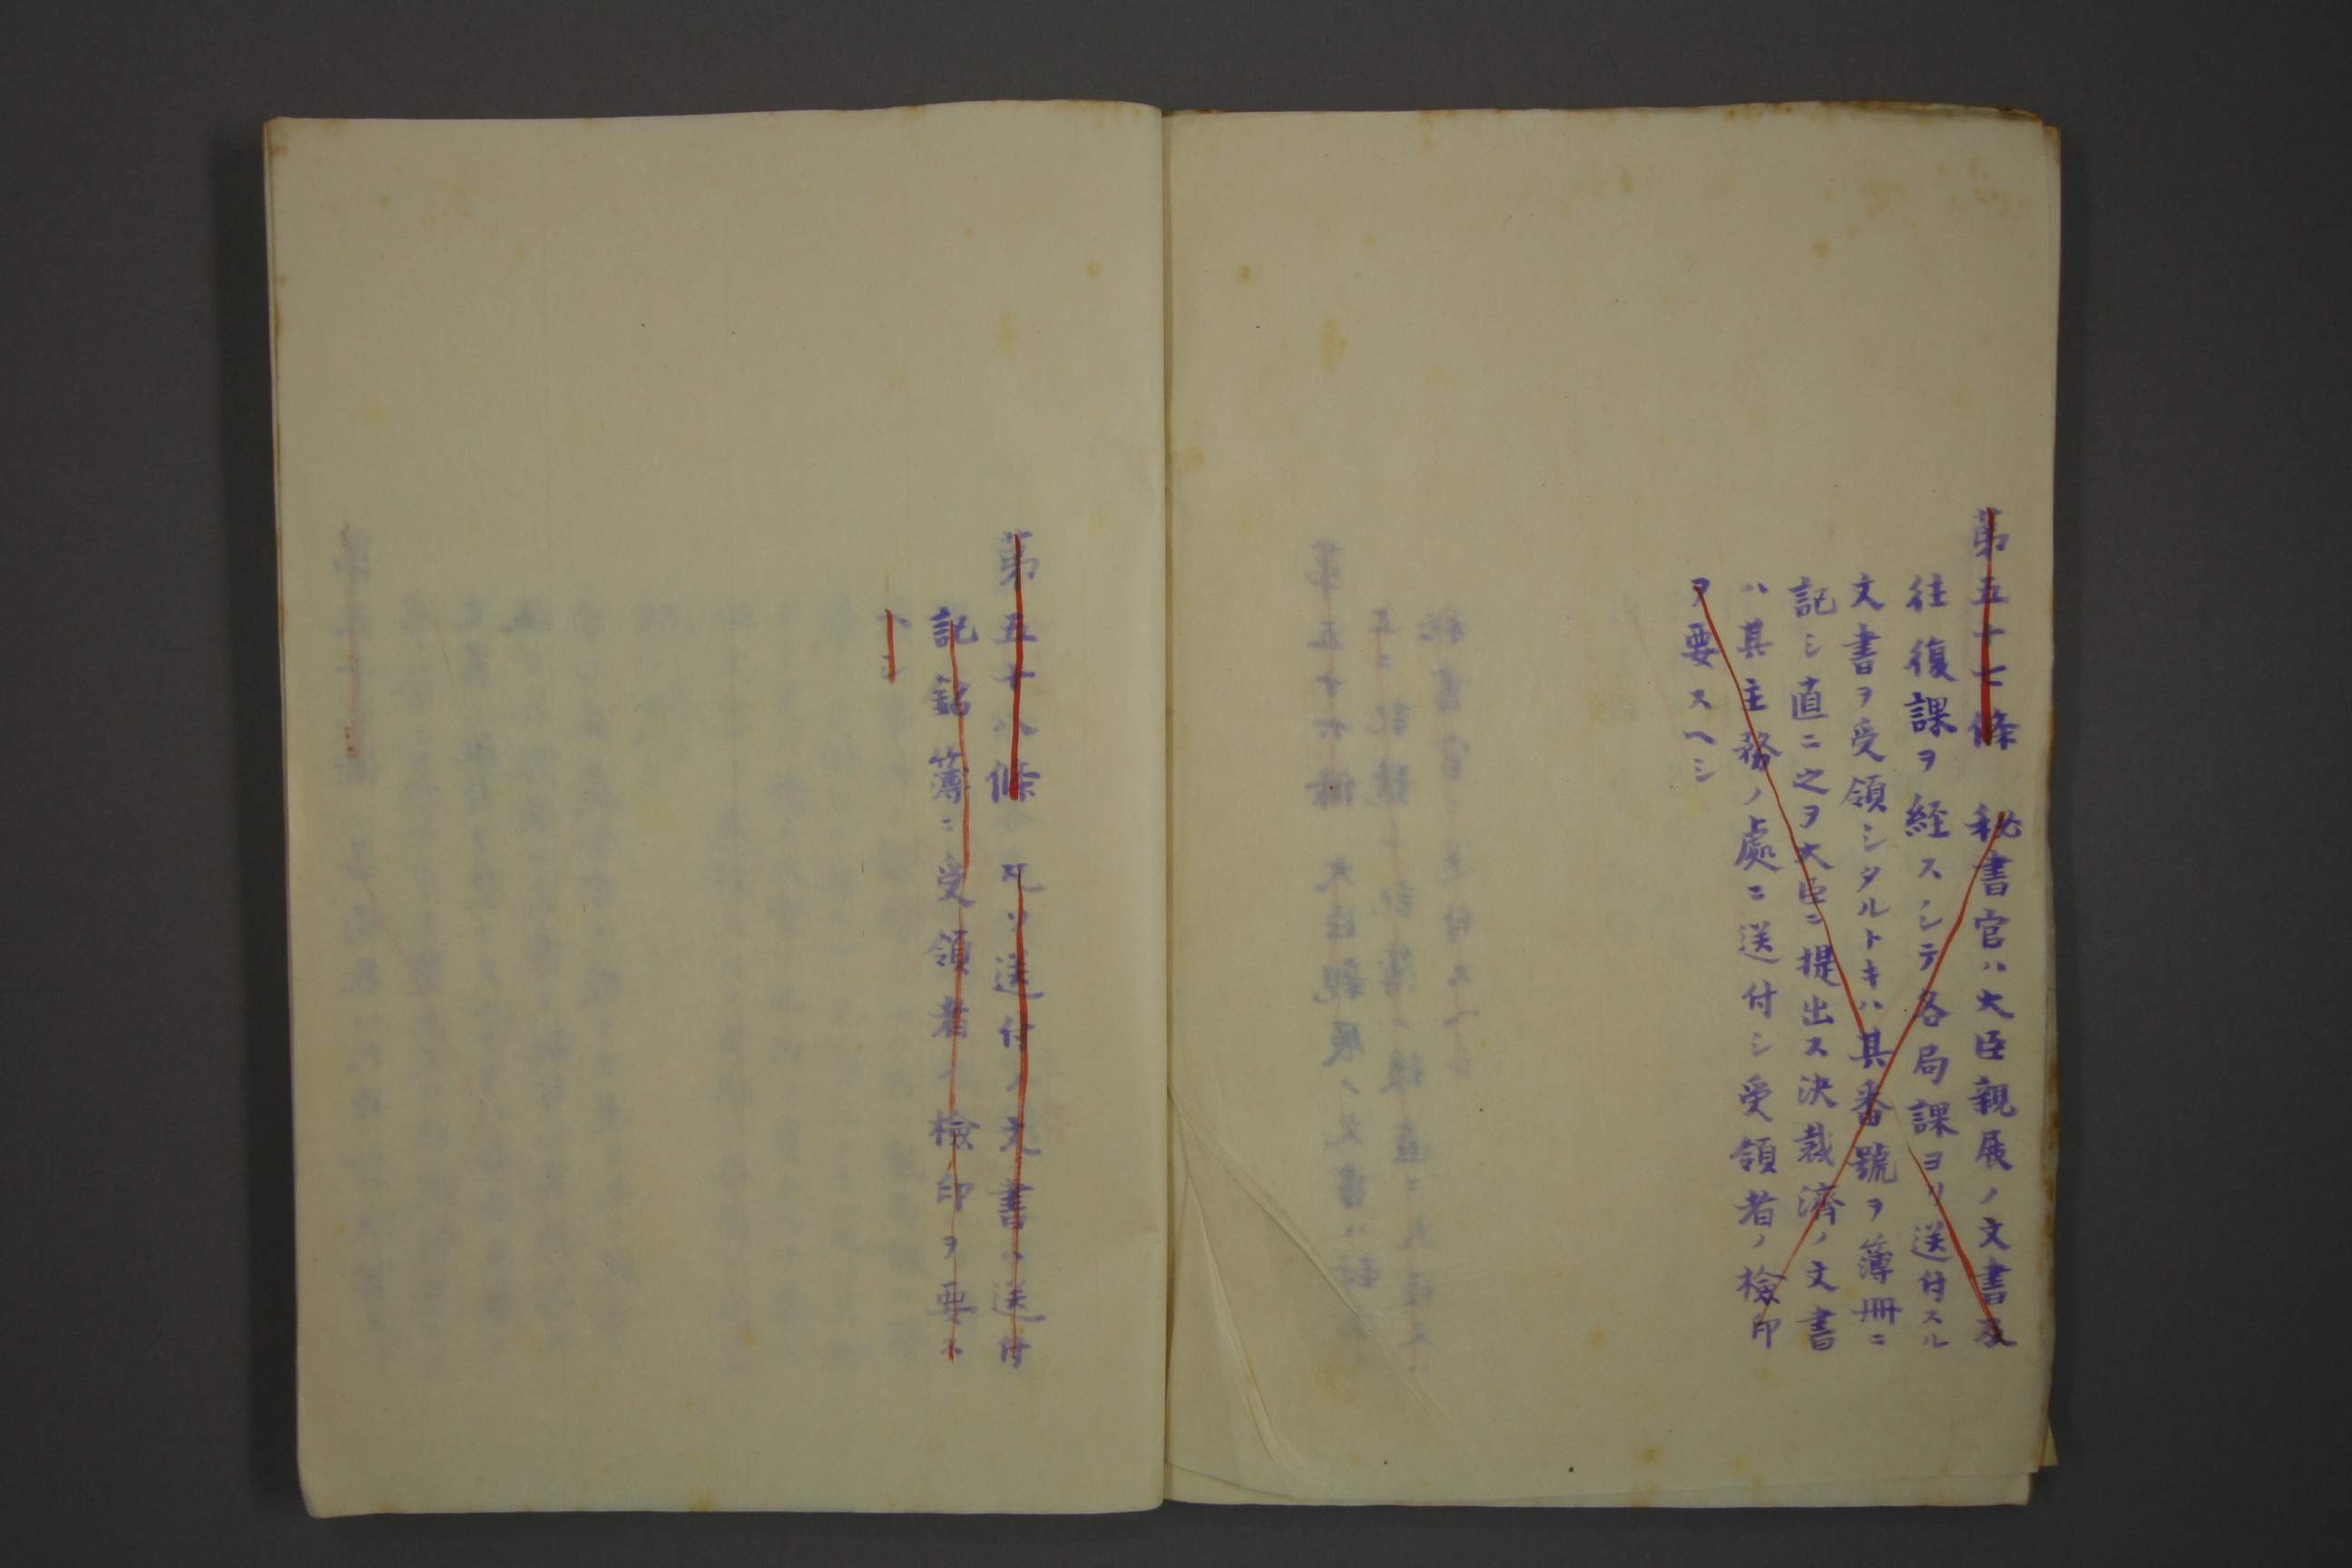 第五十七條　秘書官ハ大臣親展ノ文書及
往復課ヲ経スシテ各局課ヨリ送付スル
文書ヲ受領シタルトキハ其番號ヲ簿冊ニ
記シ直ニ之ヲ大臣ニ提出ス決裁濟ノ文書
ハ其主務ノ處ニ送付シ受領者ノ檢印
ヲ要スヘシ
第五十八條　凡ソ送付ノ文書ハ送付
記銘簿ニ受領者ノ檢印ヲ要ス
ヘシ